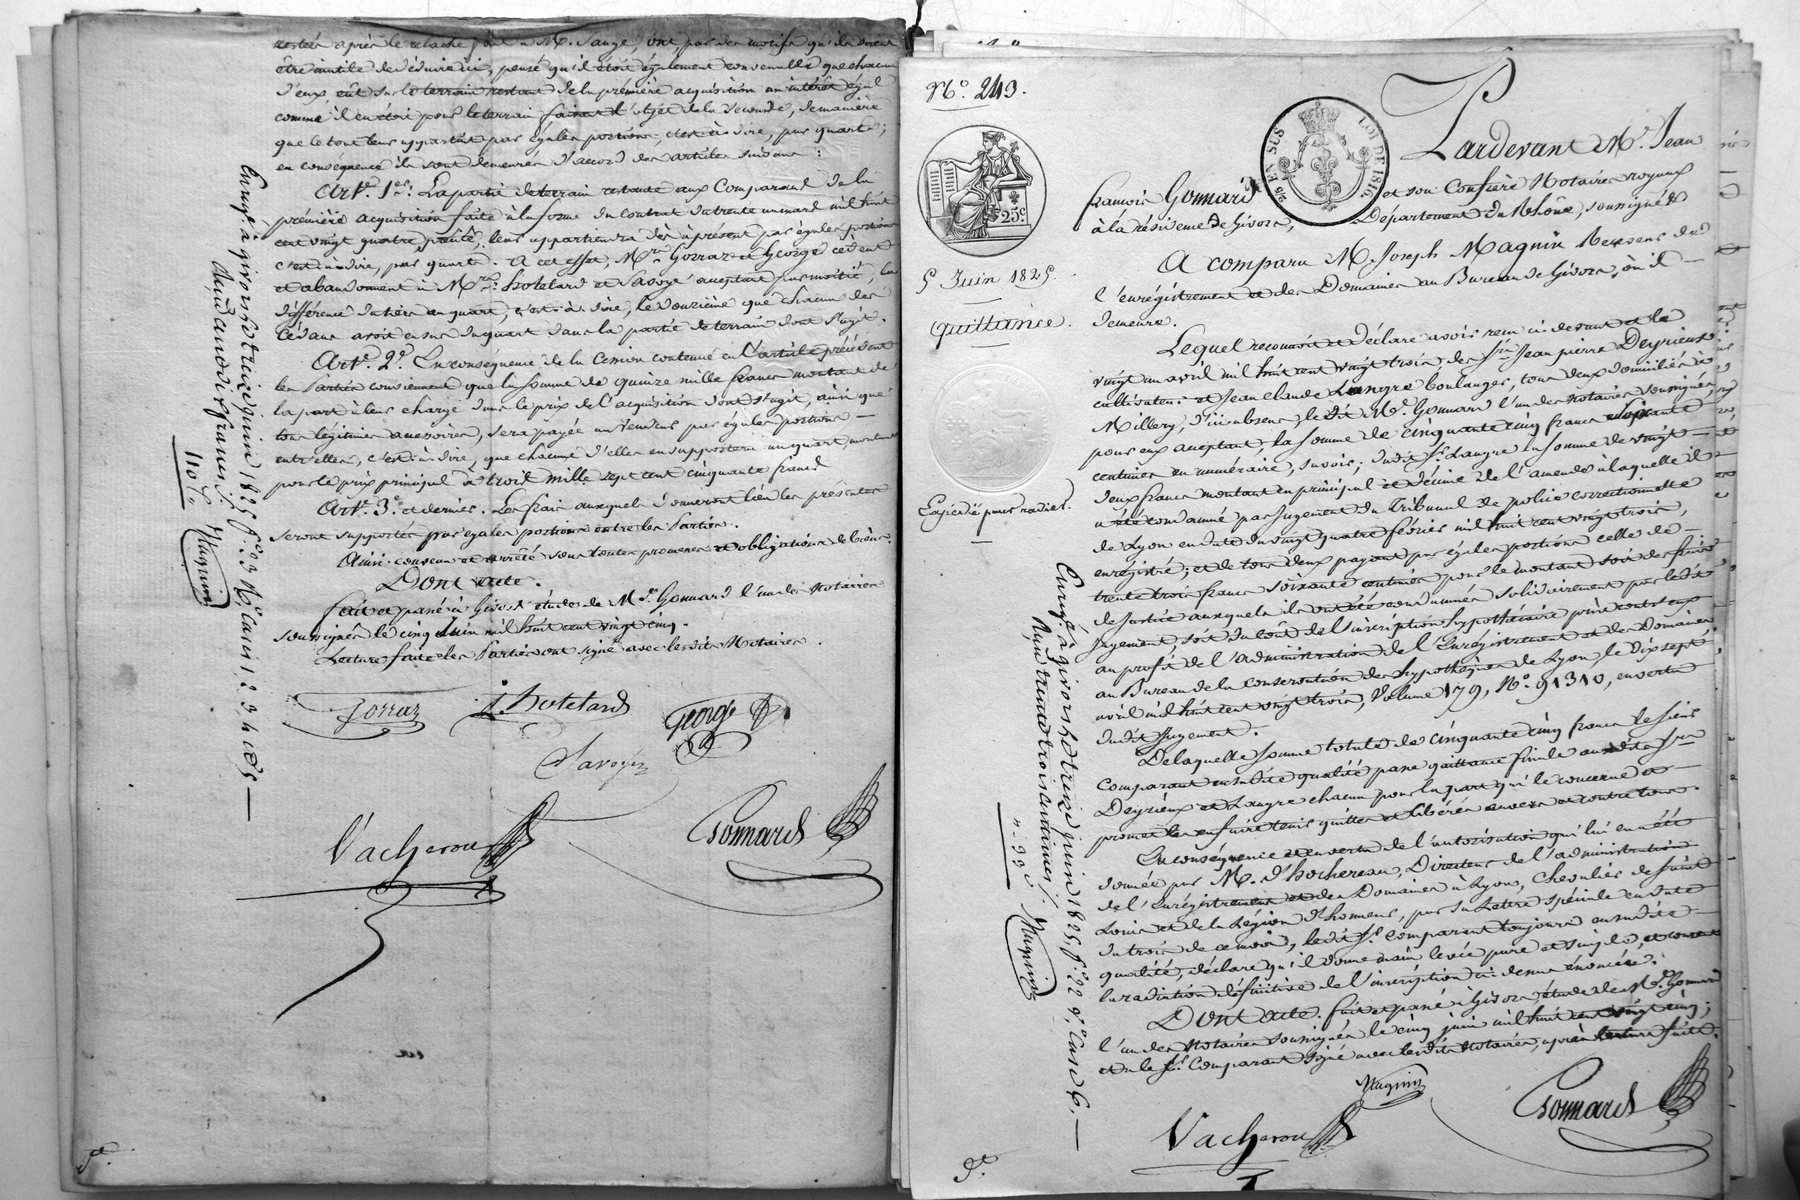 restée après le relache fait à Mr. Sauge, ont, par des motifs qu'ils disent
être inutile de déduire ici, pensé qu'il étoit également convenable que chacun
d'eux eût sur le terrain restant de la première acquisition un intérêt égal
comme il en étoit pour le terrain faisant l'objet de la seconde, de manière
que le tout leur appartint par égales portions, c'est-à-dire, par quarts;
en conséquence ils sont demeurés d'accord des articles suivans:
Art. 1er: La partie de terrain restante aux Comparans de la
première acquisition faite à la forme du contrat du trente un mars mil huit
cent vingt quatre précité, leur appartiendra dès à présent par égales portions
c'est-à-dire, par quarts. A cet effet, Mrs. Gorraz et George cèdent
et abandonnent à Mrs. hotelard et Savoye acceptant par moitié, la
différence du tiers au quart, c'est-à-dire, le douzième que chacun des
Cédans avoit en sus du quart dans la partie de terrain dont s'agit.
Art. 2e. En conséquence de la Cession contenue en l'article précédent
les Parties conviennent que la somme de quinze mille francs montant de
la part à leur charge dans le prix de l'acquisition dont s'agit, ainsi que
tous légitimes accessoires, sera payée au vendeur par égales portions
entre elles, c'est-à-dire, que chacune d'elles en supportera un quart montant
pour le prix principal à trois mille sept cent cinquante francs
Art. 3e. et dernier. Les frais auxquels donneront lieu les présentes
seront supportés par égales portions entre les Parties.
Ainsi convenu et arrêté sous toutes promesses et obligations de biens.
Dont acte.
fait et passé à Givors étude de Mr. Gonnard l'un des Notaires
soussignés le cinq Juin mil huit cent vingt cinq.
Lecture faite les Parties ont signé avec lesdits Notaires.
Gorraz J. hotelard George
Savoye
Vacheron Gonnard
Enregé à givors le treize juin 1825 f° 23 R° cases 1, 2 3 4 et 5
Reçu un franc dix
110 c. Magnin
No. 243.
25 EN SUS LOI DE 1816
25c
5 Juin 1825.
Quittance.
Expédié pour radier.
Pardevant Mr. Jean
françois Gonnard et son Confrère Notaires royaux
à la résidence de Givors, Département du Rhône, soussignés
A comparu Mr. Joseph Magnin Receveur de
l'enrégistrement et des Domaines au Bureau de Givors, où il
demeure.
Lequel reconnoit et déclare avoir reçu ci-devant et le
vingt un avril mil huit cent vingt trois des Srs. Jean pierre Deyrieux
cultivateur et Jean Claude Langre boulanger, tous deux domiciliés à
Millery, d'ici absens, le dit Mr. Gonnard l'un des notaires soussignés,
pour eux acceptant, la somme de cinquante cinq francs soixante
centimes en numéraire, savoir; dudit Sr. Langre la somme de vingt
deux francs montant en principal et décime de l'amende à laquelle il
a été condamné par Jugement du Tribunal de police correctionnelle
de Lyon en date du vingt quatre février mil huit cent vingt trois,
enregistré; et de tous deux payant par égales portions celle de
trente trois francs soixante centimes pour le montant soit des frais
de Justice auxquels ils ont été condamnés solidairement par ledit
Jugement, soit du coût de l'inscription hypothécaire prise contr'eux
au profit de l'administration de l'Enregistrement et des Domaines
au Bureau de la Conservation des hypothèques de Lyon, le dix sept
avril mil huit cent vingt trois, Volume 179, No. 91310, en vertu
dudit Jugement.
De laquelle somme totale de cinquante cinq francs le sieur
Comparant en sadite qualité passe quittance finale auxdits Srs.
Deyrieux et Langre chacun pour la part qui le concerne et
promet les en faire tenir quittes et libérés envers et contre tous.
En conséquence et en vertu de l'autorisation qui lui en a été
donnée par Mr. D'hochereau, Directeur de l'administration
de l'Enregistrement et des Domaines à Lyon, Chevalier de Saint
Louis et de la Légion d'honneur, par sa Lettre spéciale en date
du trois de ce mois, ledit Sr. Comparant toujours en sadite
qualité, déclare qu'il donne main levée pure et simple, et consent
la radiation définitive de l'inscription ci-dessus énoncée.
Dont acte. fait et passé à Givors, étude de Mr. Gonnard
l'un des Notaires soussignés le cinq juin mil huit cent vingt cinq;
et a le Sr. Comparant signé avec lesdits Notaires, après lecture faite.
Magnin
Vacheron Gonnard
Enregé à givors le treize juin 1825 f° 22 v° case 6.
Reçu trente trois centimes
" 33 c Magnin